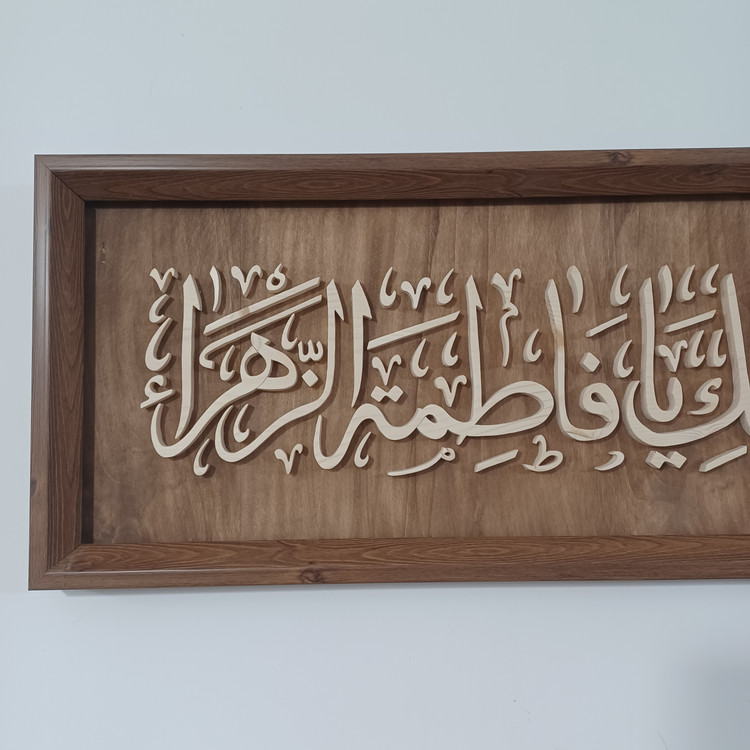 يا فاطمة الزهراء